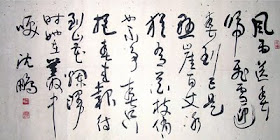 风雨送春
归飞雪迎
春到已是
悬崖百丈冰
犹有花枝俏
也不争春只
把春来报待
到山花烂漫
时她在丛中
咲 沈鹏